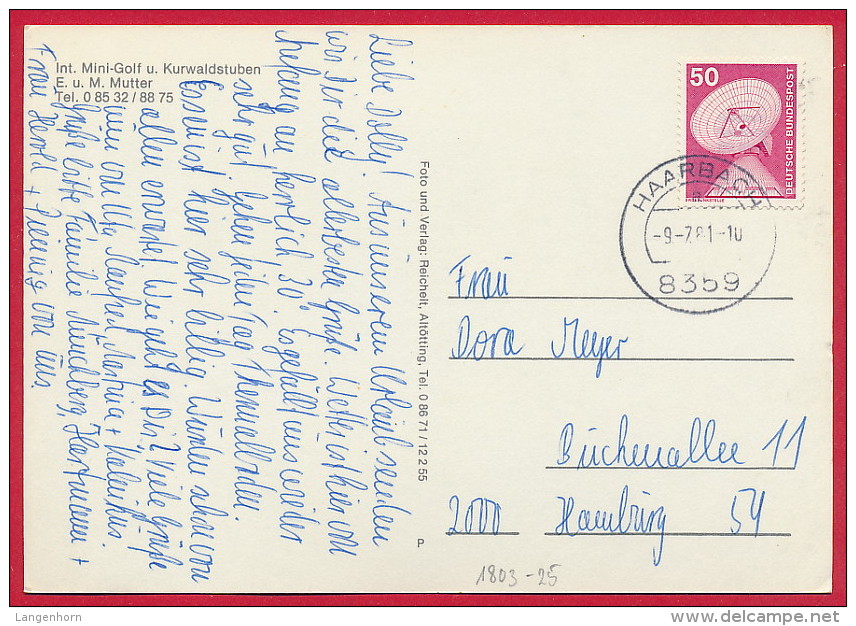 Int. Mini-Golf u. Kurwaldstuben
E. u. M. Mutter
Tel. 0 85 32 / 88 75
Liebe Dolly! Aus unserem Urlaub senden
wir Dir die allerbesten Grüße. Wetter ist hier von
Anfang an herrlich 30°. Es gefällt uns wieder
sehr gut. Gehen jeden Tag Thermalbaden.
Essen ist hier sehr billig. Wurden schon von
allen erwartet. Wie geht es Dir? Viele Grüße
nun von Manfred, Martina +
Grüße bitte Familie Münchberg, Hartmann +
Frau Herold + von uns.
Foto und Verlag: Reichelt, Altötting, Tel. 0 86 71 / 12 2 55
P
50
DEUTSCHE BUNDESPOST
ERDEFUNKSTELLE
HAARBACH
-9.-7.81-10
8359
Frau
Dora Meyer
Buchenallee 11
2000 Hamburg 54
1803-25
Langenhorn
delcampe.net